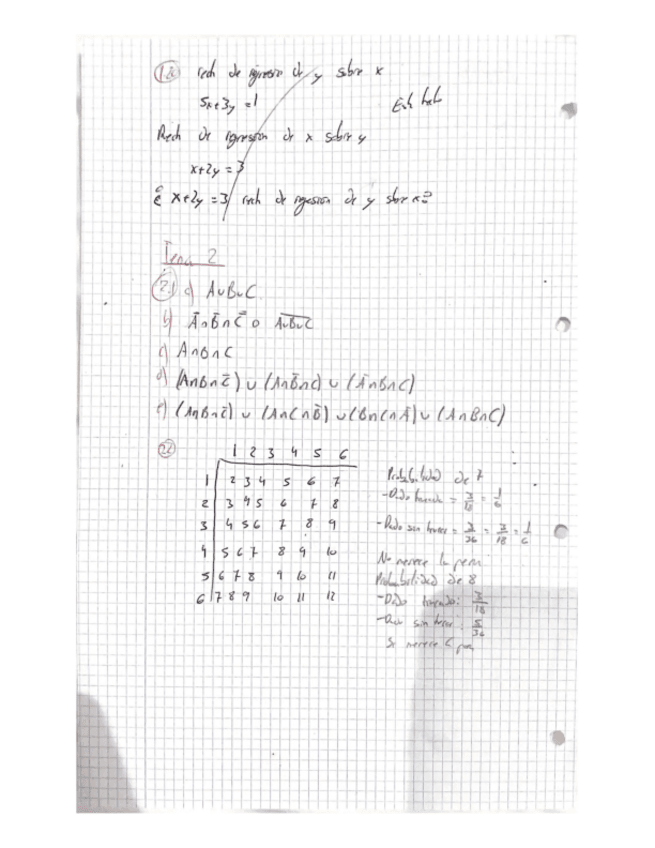 1.8 recta de regresión de y sobre x
5x+3y=1
Está hecho
Recta de regresión de x sobre y
x+2y=3
¿ x+2y=3 recta de regresión de y sobre x?
Tema 2
2.1 a) A∪B∪C
b) A̅∩B̅∩C̅ o \overline{A∪B∪C}
c) A∩B∩C
d) (A∩B∩C̅) ∪ (A∩B̅∩C) ∪ (A̅∩B∩C)
e) (A∩B∩C̅) ∪ (A∩C∩B̅) ∪ (B∩C∩A̅) ∪ (A∩B∩C)
2.2
1 2 3 4 5 6
1 2 3 4 5 6 7
2 3 4 5 6 7 8
3 4 5 6 7 8 9
4 5 6 7 8 9 10
5 6 7 8 9 10 11
6 7 8 9 10 11 12
Probabilidad de 7
-Dado trucado = 3/18 = 1/6
-Dado sin trucar = = 3/18 = 1/6
No merece la pena
Probabilidad de 8
-Dado trucado: 3/18
-Dado sin trucar: 5/36
Si merece la pena